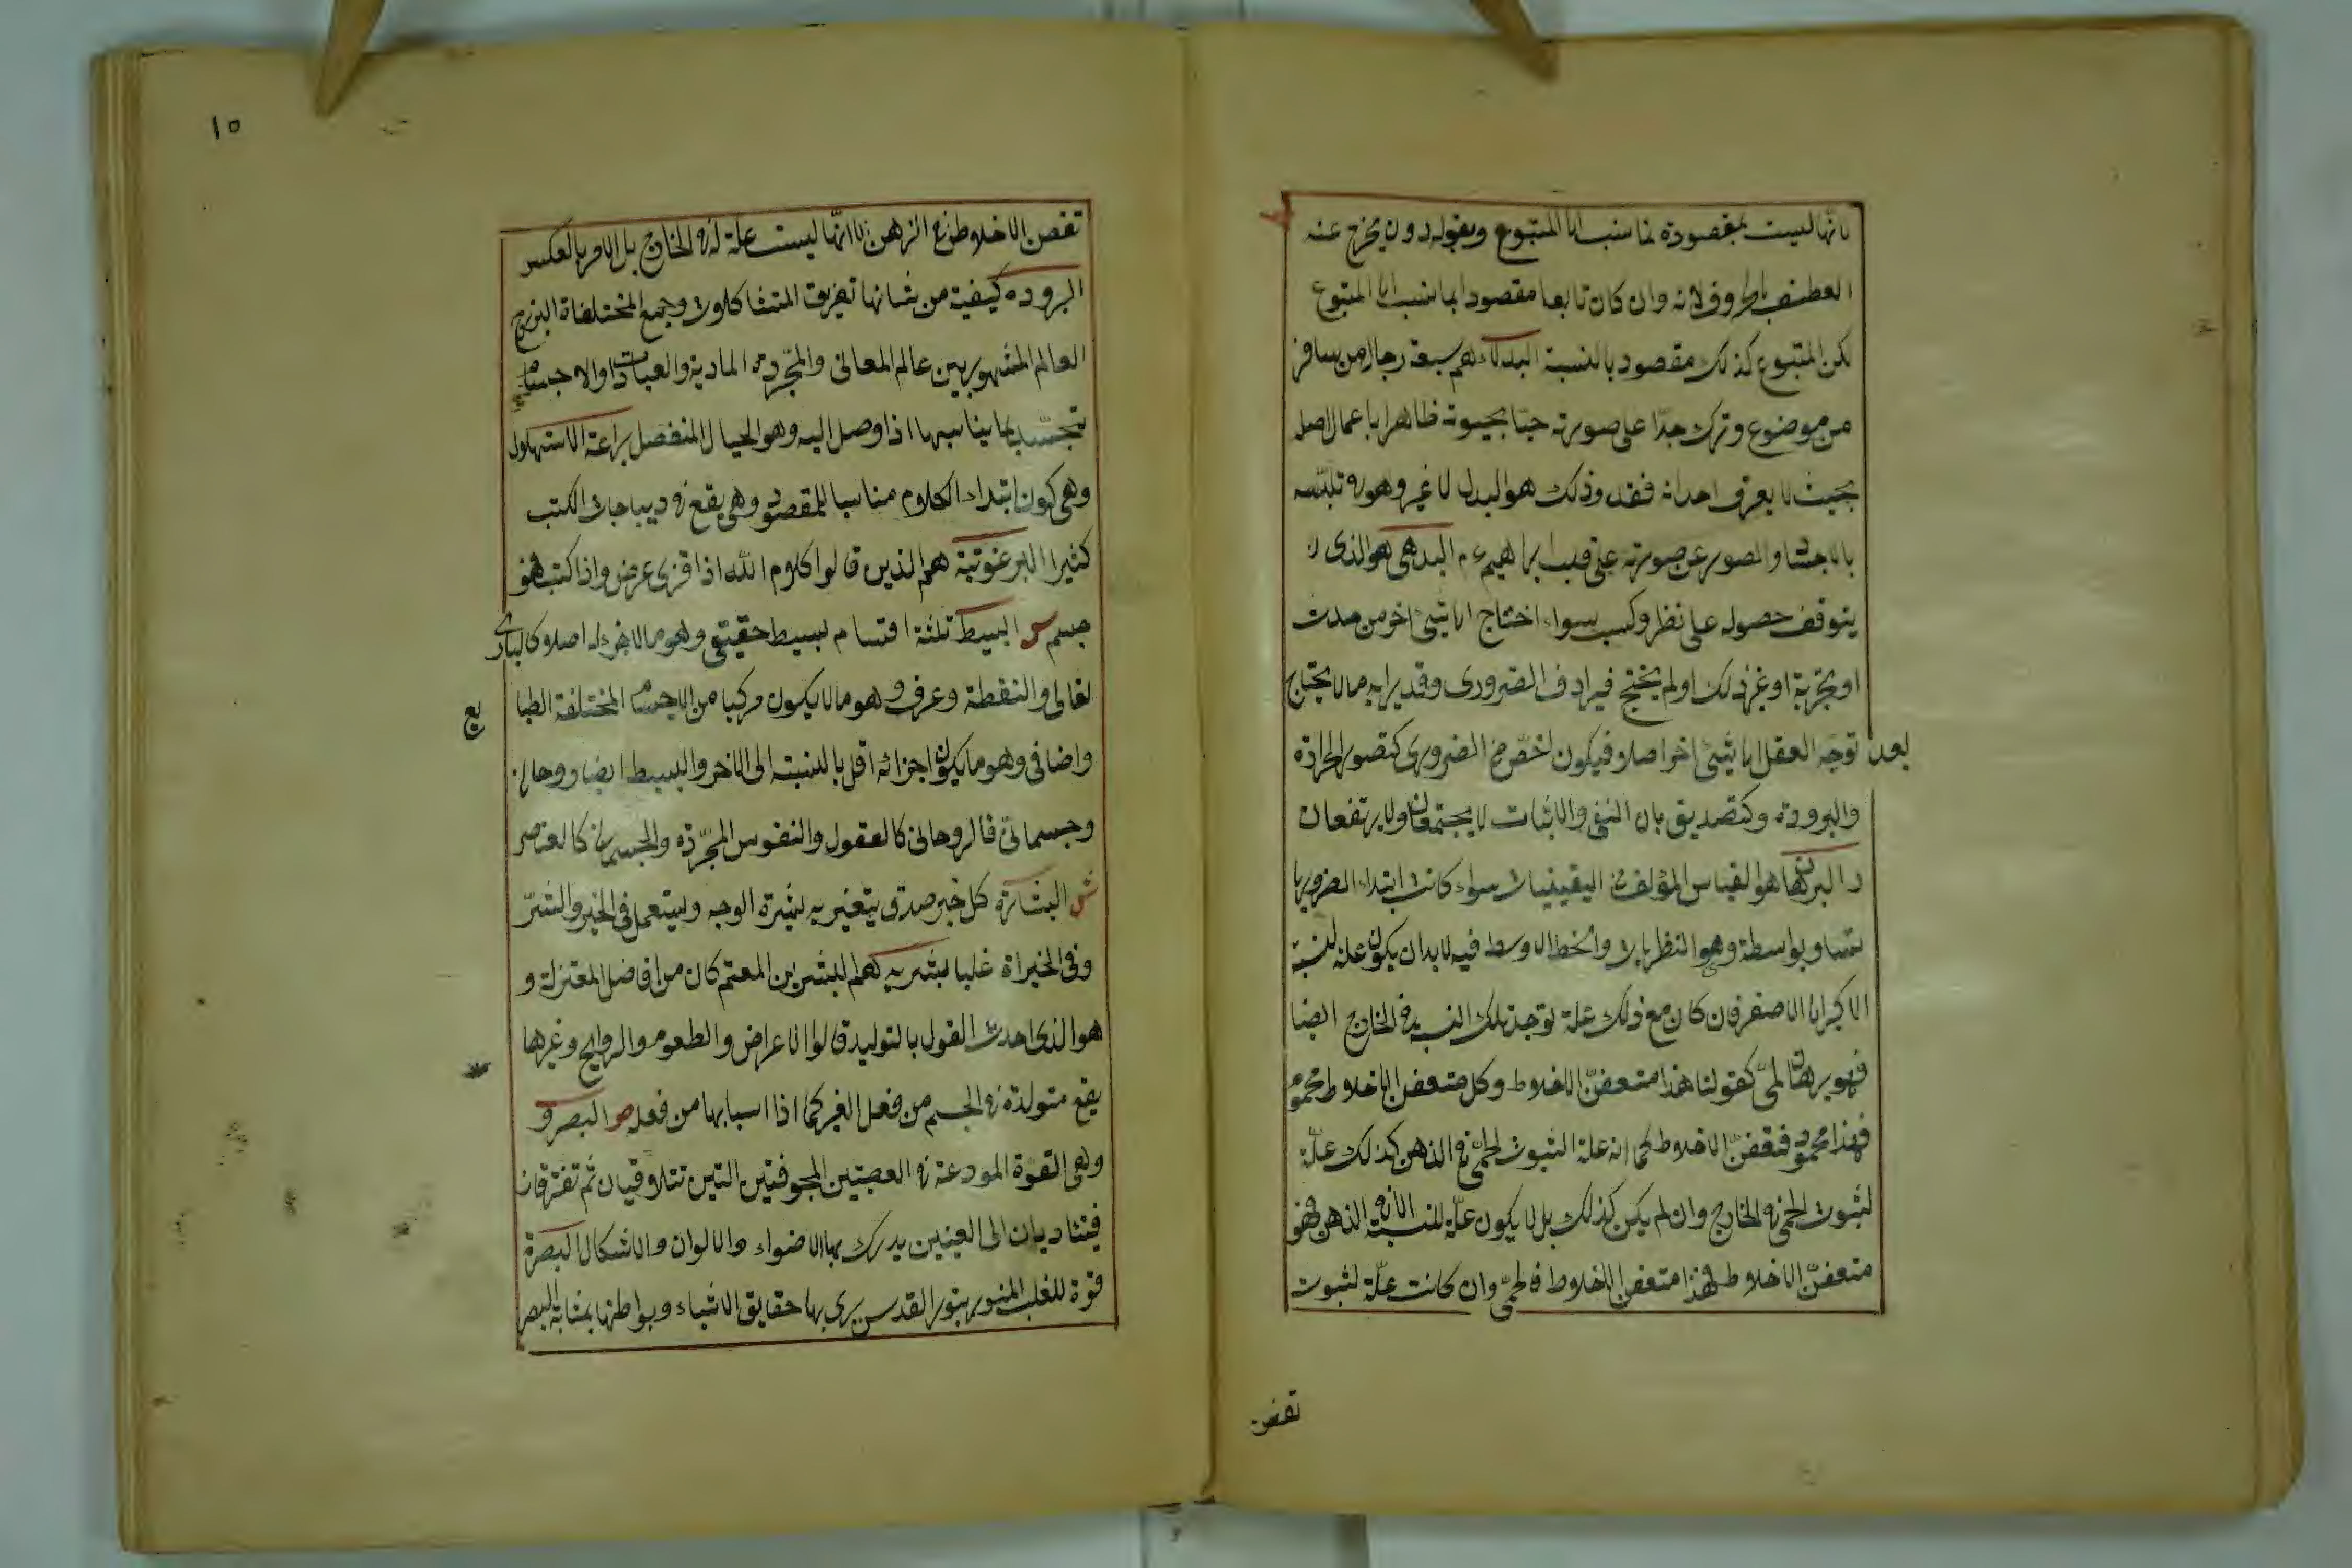 لانها ليست بمقصودة لما نسب الى المتبوع وبقوله دون يخرج عنه
العطف بالحروف لانه وان كان تابعا مقصودا بما نسب الى المتبوع
لكن المتبوع كذلك مقصود بالنسبة البدلاء هم سبعة رجال من سافر
من موضوع وترك جدّا على صورته حيّا بحيوته ظاهرا باعمال اصله
بحيث لا يعرف احد انه فقد وذلك هو البدل لا غير وهو في تلبّسه
بالاجساد والصور عن صورته على قلب ابراهيم ء م البدهى هو الذى لا
يتوقف حصوله على نظر وكسب سواء احتاج الى شئ اخر من حدث
او تجربة او غير ذلك او لم يحتج فيرادف الضرورى وقد يراد به ما لا يحتاج
بعد توجّه العقل الى شئ اخر اصلا فيكون اخصّ من الضرورى كتصور الحرارة
والبرودة وكتصديق بان النفى والاثبات لا يجتمعان ولا يرتفعان
ر البرهان هو القياس المؤلف من اليقينيات سواء كانت ابتداء الضروريا
تتا وبواسطة وهو النظريات والخط الاوسط فيه لا بد ان يكون علة لنسبة
الاكبر الى الاصغر فان كان مع ذلك علة لوجد تلك النسبة في الخارج ايضا
فهو برهان لمّى كقولنا هذا متعفنّ الاخلاط وكل متعفن الاخلاط محموم
فهذا محموم فتعفنّ الاخلاط كما انه علة الثبوت الحمّى في الذهن كذلك علّة
لثبوت الحمّى في الخارج وان لم يكن كذلك بل لا يكون علّة للنسبة الا في الذهن فهو
متعفنّ الاخلاط فهذا متعفن الاخلاط فالحمّى وان كانت علّة لثبوت
تغض
١٥
تغض الاخلاط في الذهن الا انّها ليست علة له في الخارج بل الامر بالعكس
البروده كيفية من شانها تفريق المتشاكلات وجمع المختلفاة البرزخ
العالم المشهور بين عالم المعانى والمجّردة المادية والعبادات والاجسام
تتجسّد بما يناسبها اذا وصل اليه وهو الخيال المنفصل براعة الاستهلال
وهى كون ابتداء الكلام مناسبا للمقصود وهى يقع في ديباجات الكتب
كثيرا البرغوثية هم الذين قالوا كلام الله اذا قرى عرض واذا كتب فهو
جسم س البسيط ثلثة اقسام بسيط حقيقى وهو ما لا جزء له اصلا كالبارى
تعالى والنقطة وعرفى وهو ما لا يكون مركبا من الاجسام المختلفة الطبا
يع
واضافى وهو ما يكون اجزائه اقل بالنسبته الى الاخر والبسيط ايضا روحانى
وجسمانىّ فالروحانى كالعقول والنفوس المجّردة والجسمانى كالعناصر
ش البشارة كل خبر صدق يتغير به بشرة الوجه ويستعمل فى الخير والشرّ
وفى الخيراة غلبا بشريه هم البشر بن المعتم كان من افاضل المعتزلة و
هو الذى احدث القول بالتوليد قالوا الاعراض والطعوم والروايح وغيرها
يقع متولدة في الجسم من فعل الغير كما اذا اسبابها من فعله ص البصر و
وهى القوّة المودعة في العصبتين المجوفتين التين تتلاقيان ثم تفترقان
فيتاديان الى العينين يدرك بها الاضواء والالوان والاشكال البصرة
قوّة للقلب المنور بنور القدس يرى بها حقايق الاشياء وبواطنها بمثابة البصر